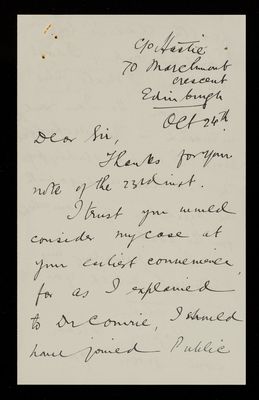 c/o Hastie
70 Marchmont
crescent
Edinburgh
Oct 24th
Dear Sir,
Thanks for your
note of the 23rd inst.
I trust you would
consider my case at
your earliest convenience,
for as I explained
to Dr Comrie, I should
have joined Public